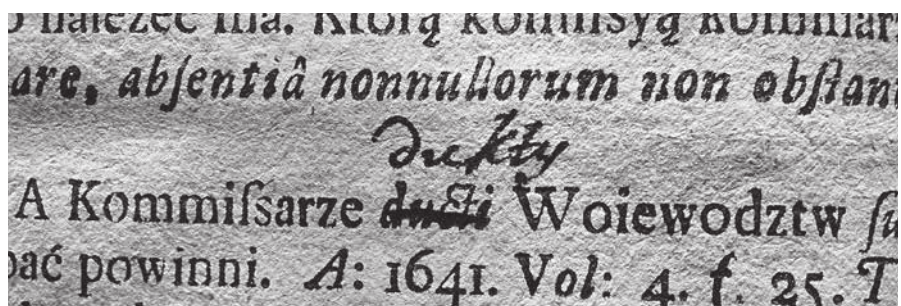 należeć ma. Ktorą kommiſyą
are, abſentiâ nonnullorum non obſtan
dukty
A Kommiſsarze ducti Woiewodztw ſu
ać powinni. A: 1641. Vol: 4. f. 25. T